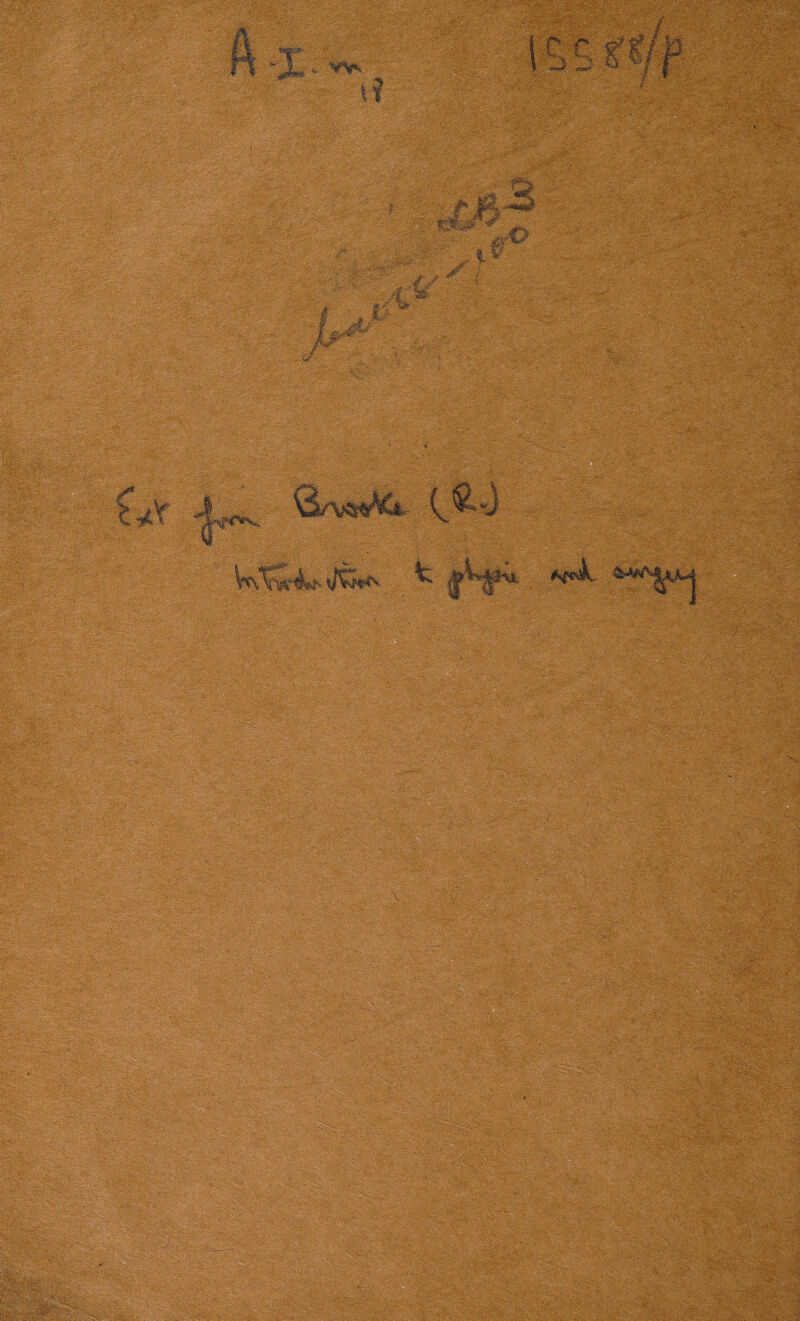 A.I.m 15588/p
18
Ext from Brooke (R.)
Introduction to physic and surgery